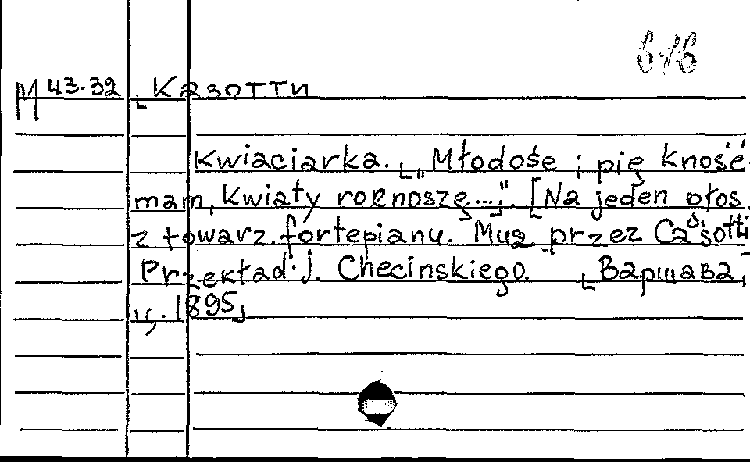 6-1б
М 43-32 Казотти
Kwiaciarka. „Młodośe i pię kność
mam, kwiaty roznoszę...". [Na jeden głos
z towarz. fortepianu. Muz przez Casotti
Przekład J. Checinskiego. Варшава,
ц. 1895